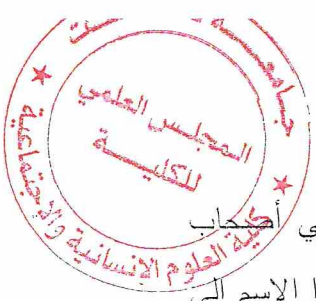 جامعة
المجلس العلمي
للكليـــــة
كلية العلوم الإنسانية والاجتماعية
ي أصحاب
ا الاسم إلى